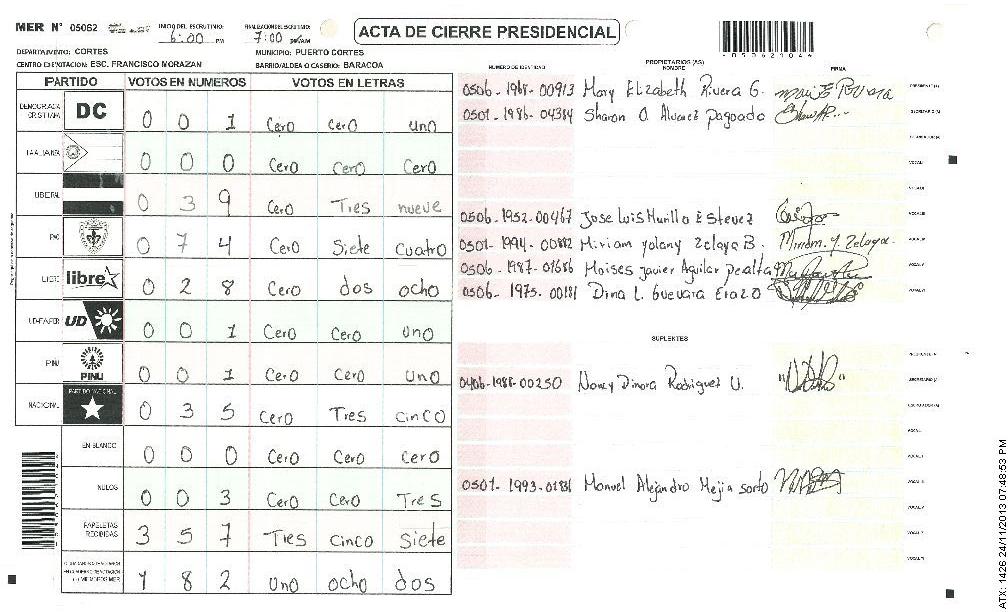 MER N° 05062 INICIO DEL ESCRUTINIO: 6:00 PM FINALIZACION ESCRUTINIO: 7:00 ACTA DE CIERRE PRESIDENCIAL
-050621044
DEPARTAMENTO: CORTES MUNICIPIO: PUERTO CORTES
CENTRO DE VOTACION: ESC. FRANCISCO MORAZAN BARRIO/ALDEA O CASERIO: BARACOA
PARTIDO VOTOS EN NUMEROS VOTOS EN LETRAS
DEMOCRACIA CRISTIANA DC 0 0 1 Cero cero uno
LA ALIANZA 0 0 0 Cero Cero Cero
LIBERAL 0 3 9 Cero Tres nueve
PAC 0 7 4 Cero Siete cuatro
LIBRE libre 0 2 8 Cero dos ocho
UD-FAPER UD 0 0 1 Cero Cero uno
PINU PINU 0 0 1 Cero Cero uno
NACIONAL PARTIDO NACIONAL 0 3 5 Cero Tres cinco
EN BLANCO 0 0 0 Cero Cero cero
NULOS 0 0 3 Cero Cero Tres
PAPELETAS RECIBIDAS 3 5 7 Tres cinco siete
1 8 2 uno ocho dos
NUMERO DE IDENTIDAD PROPIETARIOS (AS) NOMBRE FIRMA
0506-1968-00913 Mary Elizabeth Rivera G. PRESIDENTE (A)
0501-1986-04384 Sharon O. Alvarez pagoado SECRETARIO (A)
ESCRUTADOR (A)
VOCAL I
VOCAL II
0506-1952-00467 Jose Luis Murillo Estevez VOCAL III
0501-1994-00882 Miriam yolany Zelaya B. Miriam. Y. Zelaya. VOCAL IV
0506-1987-01686 Moises Javier Aguilar peralta VOCAL V
0506-1975-00181 Dina L. Guevara Erazo VOCAL VI
SUPLENTES
PRESIDENTE (A)
0406-1988-00250 Nancy Dinora Rodriguez U. SECRETARIO (A)
ESCRUTADOR (A)
VOCAL I
VOCAL II
0501-1993-01881 Manuel Alejandro Mejia sorto
VOCAL IV
VOCAL V
VOCAL VI
ATX: 1426 24/11/2013 07:48:53 PM